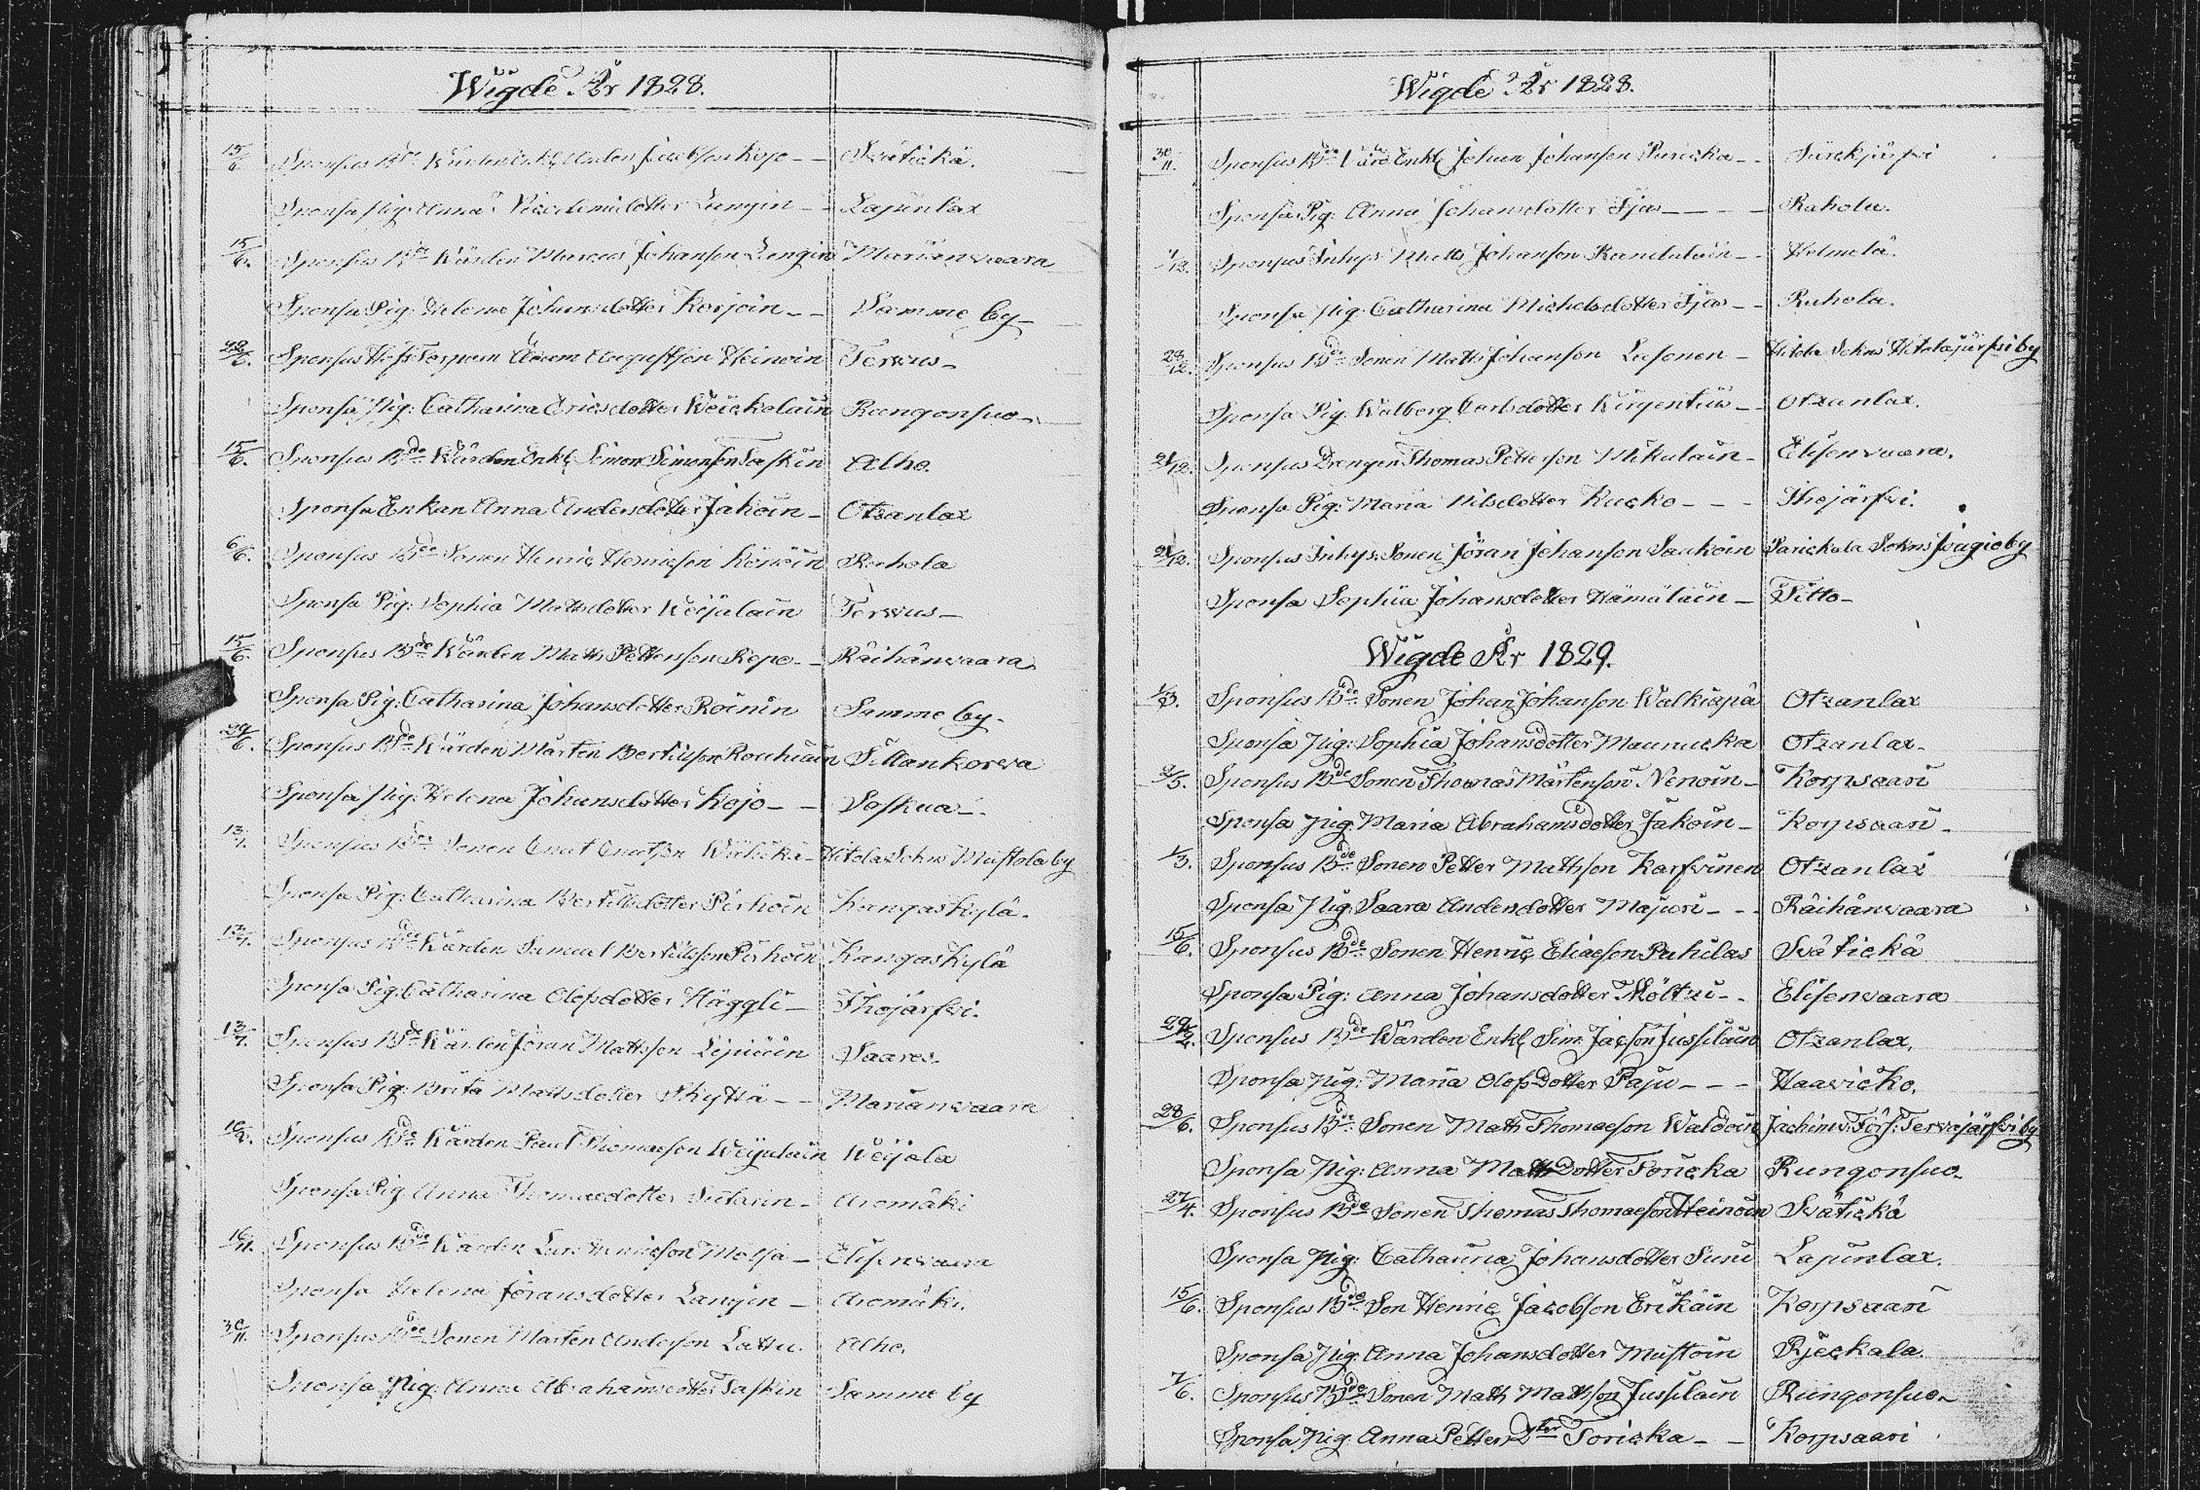 Wigde År 1828.
15/6. Sponsus Bde Wärden Enkl Anders Jacobson Kojo - - Svätickä.
Sponsa Pig: Anna Nicodemidotter Langin - - Lapinlax
15/6. Sponsus Bde Wärden Marcus Johanson Langin Marianvaara
Sponsa Pig: Helena Johansdotter Korjoin - - Samme by -
22/6. Sponsus Hofs Torparn Adam Augustson Heinoin Terwus -
Sponsa Pig: Catharina Ericsdotter Weickolain Rungonsuo -
15/6. Sponsus Bde Wärden Enkl Simon Simonson Taskin Alho.
Sponsa Enkan Anna Andersdotter Jakoin - Otzanlax
6/6. Sponsus Bde Sonen Henric Henricson Könöin Rahola
Sponsa Pig: Sophia Mattsdotter Weijalain Terwus -
15/6. Sponsus Bde Wärden Matts Pettersson Repo - - Räihänvaara
Sponsa Pig: Catharina Johansdotter Roinin Samme by -
24/6. Sponsus Bde Wärden Mårten Bertilsson Sillankorva
Sponsa Pig: Helena Johansdotter Kojo - - Soskua -.
13/7. Sponsus Bde Sonen Cnut Cnutson Hitola Sokns Mustola by
Sponsa Pig: Catharina Bertilsdotter Pirhoin Kangaskylä.
13/7. Sponsus Bde Wärden Samuel Bertilsson Pirhoin Kangaskylä
Sponsa Pig: Catharina Olofsdotter Häggli - Ihojärfvi.
13/7. Sponsus Bde Wärden Jöran Mattsson Saares.
Sponsa Pig: Brita Mattsdotter Skyttä - - Marianvaara
Sponsus Bde Wärden Paul Thomasson Weijalain Weijala
Sponsa Pig: Anna Thomasdotter Sutarin - Aromäki
Sponsus Bde Wärden Lars Molsä - Elisenvaara
Sponsa Helena Jöransdotter Langin - Aromäki.
30/11. Sponsus Bde Sonen Mårten Anderson Lattu. Alho.
Sponsa Pig: Anna Abrahamsdotter Taskin Samme by
Wigde År 1828.
30/11. Sponsus Bde Wärd Enkl Johan Johanson Puricka - - Särckjärfvi
Sponsa Pig: Anna Johansdotter Ijas - - - - Rahola.
Sponsus Inhys Matts Johanson - - Helmelä.
Sponsa Pig: Catharina Michelsdotter Ijas - - Rahola.
28/12. Sponsus Bde Sonen Matts Johanson Lasonen - Hitola Sokns Hitolajärfvi by
Sponsa Pig: Walborg Carlsdotter - - Otzanlax.
21/12. Sponsus Drengen Thomas Petterson Mikulain - Elisenvaara.
Sponsa Pig: Maria Nilsdotter Kucko - - - Ihojärfvi.
21/12. Sponsus Inhys Sonen Jöran Johanson Saukoin Parickala Sokns by
Sponsa Sophia Johansdotter Hämäläin - Ditto -
Wigde År 1829.
1/3. Sponsus Bde Sonen Johan Johanson Walkiapä Otzanlax
Sponsa Pig: Sophia Johansdotter Maunucka Otzanlax -
Sponsus Bde Sonen Thomas Mårtenson Nenoin - Korpsaari
Sponsa Pig: Maria Abrahamsdotter Jakoin - Korpsaari -
1/3. Sponsus Bde Sonen Petter Mathson Karfvinen Otzanlax
Sponsa Pig: Saara Andersdotter Majuri - - - Räihänvaara
15/6. Sponsus Bde Sonen Henric Eliaeson Puhilas Svätickä
Sponsa Pig: Anna Johansdotter Möltzi - - Elisenvaara
Sponsus Bde Wärden Enkl Sim: Jacson Jussilain Otzanlax.
Sponsa Pig: Maria Olofsdotter Paju - - - Haavicko.
28/6. Sponsus Bde Sonen Math Thomaeson Waldoin Jachimv. Förs: Tervajärfvi by
Sponsa Pig: Anna Mattsdotter Toricka Rungonsuo -
27/4. Sponsus Bde Sonen Thomas Thomaeson Heinoin Svätickä
Sponsa Pig: Catharina Johansdotter Suni Lapinlax.
15/6. Sponsus Bde Son Henric Jacobson Erikäin Korpsaari
Sponsa Pig: Anna Johansdotter Mustoin Rjeckala.
7/6. Sponsus Bde Sonen Math Mathson Jussilain Rungonsuo -
Sponsa Pig: Anna Petters Dter Toricka - - Korpsaari